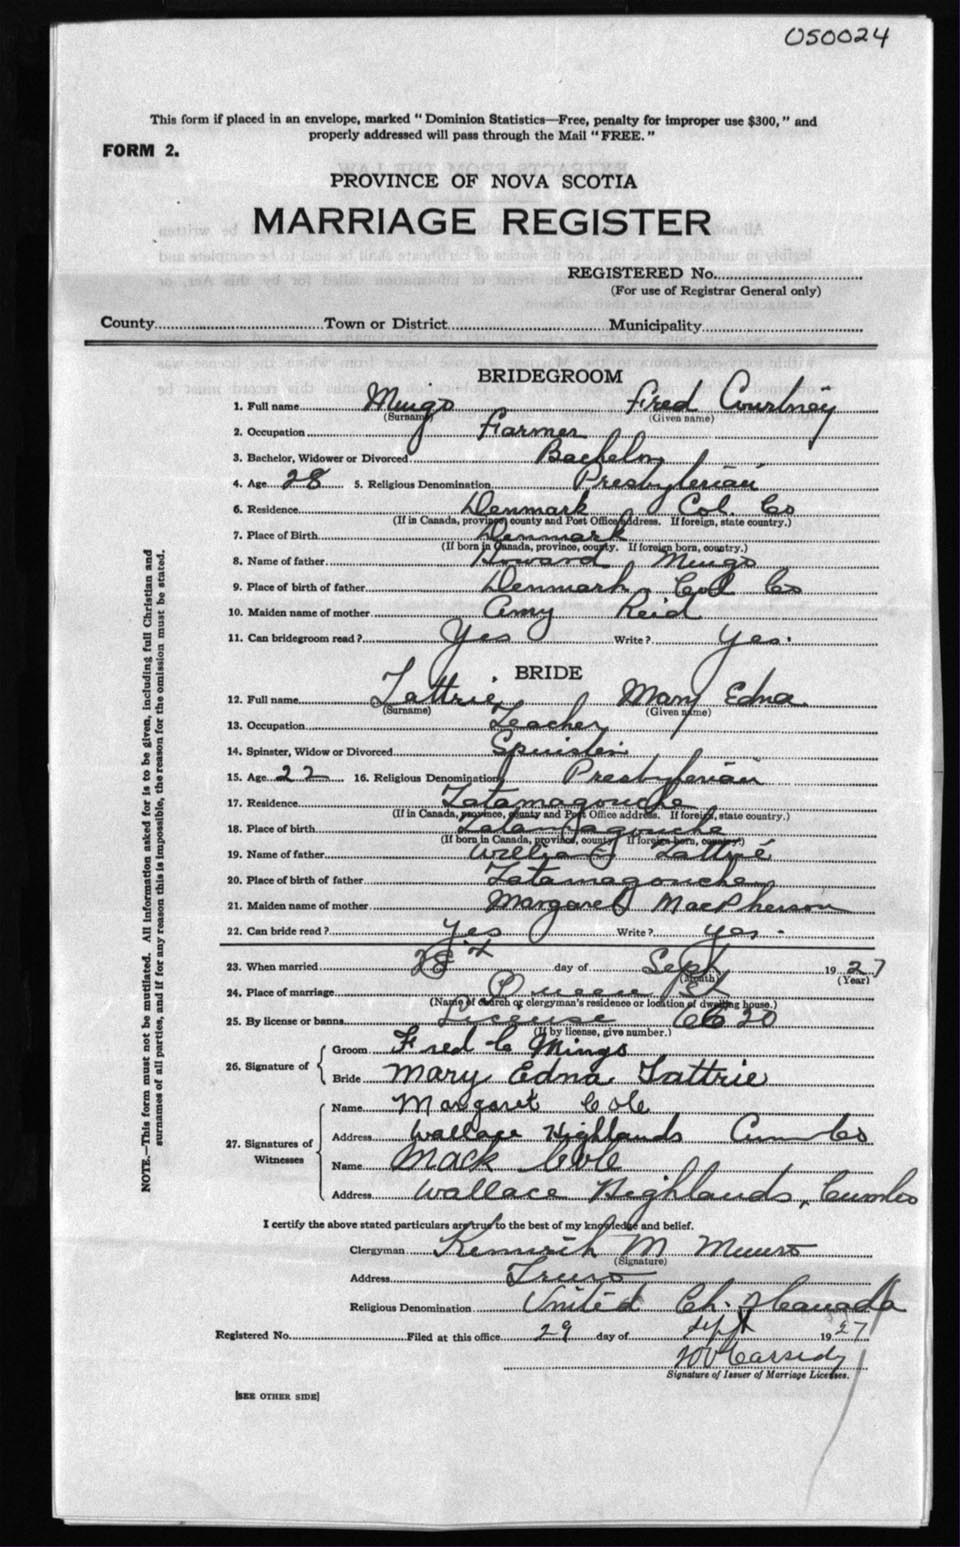 050024
This form if placed in an envelope, marked "Dominion Statistics—Free, penalty for improper use $300," and
properly addressed will pass through the Mail "FREE."
FORM 2.
PROVINCE OF NOVA SCOTIA
MARRIAGE REGISTER
REGISTERED No.
(For use of Registrar General only)
County Town or District Municipality
BRIDEGROOM
1. Full name Mingo Fred Courtney
(Surname) (Given name)
2. Occupation Farmer
3. Bachelor, Widower or Divorced Bachelor
4. Age 28 5. Religious Denomination Presbyterian
6. Residence Denmark Col. Co
(If in Canada, province, county and Post Office address. If foreign, state country.)
7. Place of Birth Denmark
(If born in Canada, province, county. If foreign born, country.)
8. Name of father Howard Mingo
9. Place of birth of father Denmark Col Co
10. Maiden name of mother Amy Reid
11. Can bridegroom read? Yes Write? Yes.
BRIDE
12. Full name Tattrie Mary Edna
(Surname) (Given name)
13. Occupation Teacher
14. Spinster, Widow or Divorced Spinster
15. Age 22 16. Religious Denomination Presbyterian
17. Residence Tatamagouche
(If in Canada, province, county and Post Office address. If foreign, state country.)
18. Place of birth Tatamagouche
(If born in Canada, province, county. If foreign born, country.)
19. Name of father William Tattrie
20. Place of birth of father Tatamagouche
21. Maiden name of mother Margaret MacPherson
22. Can bride read? Yes Write? Yes.
23. When married 28th day of Sept 1927
(Month) (Year)
24. Place of marriage Queen St
(Name of church or clergyman's residence or location of dwelling house.)
25. By license or banns License CC 20
(If by license, give number.)
26. Signature of Groom Fred C Mingo
Bride Mary Edna Tattrie
27. Signatures of Witnesses Name Margaret Cole
Address Wallace Highlands Cum Co
Name Mack Cole
Address Wallace Highlands, Cumb Co
I certify the above stated particulars are true to the best of my knowledge and belief.
Clergyman Kenneth M Munro
(Signature)
Address Truro
Religious Denomination United Ch. of Canada
Registered No. Filed at this office 29 day of Sept 1927
Cassidy
Signature of Issuer of Marriage Licenses.
[SEE OTHER SIDE]
NOTE.—This form must not be mutilated. All information asked for is to be given, including full Christian and
surnames of all parties, and if for any reason this is impossible, the reason for the omission must be stated.